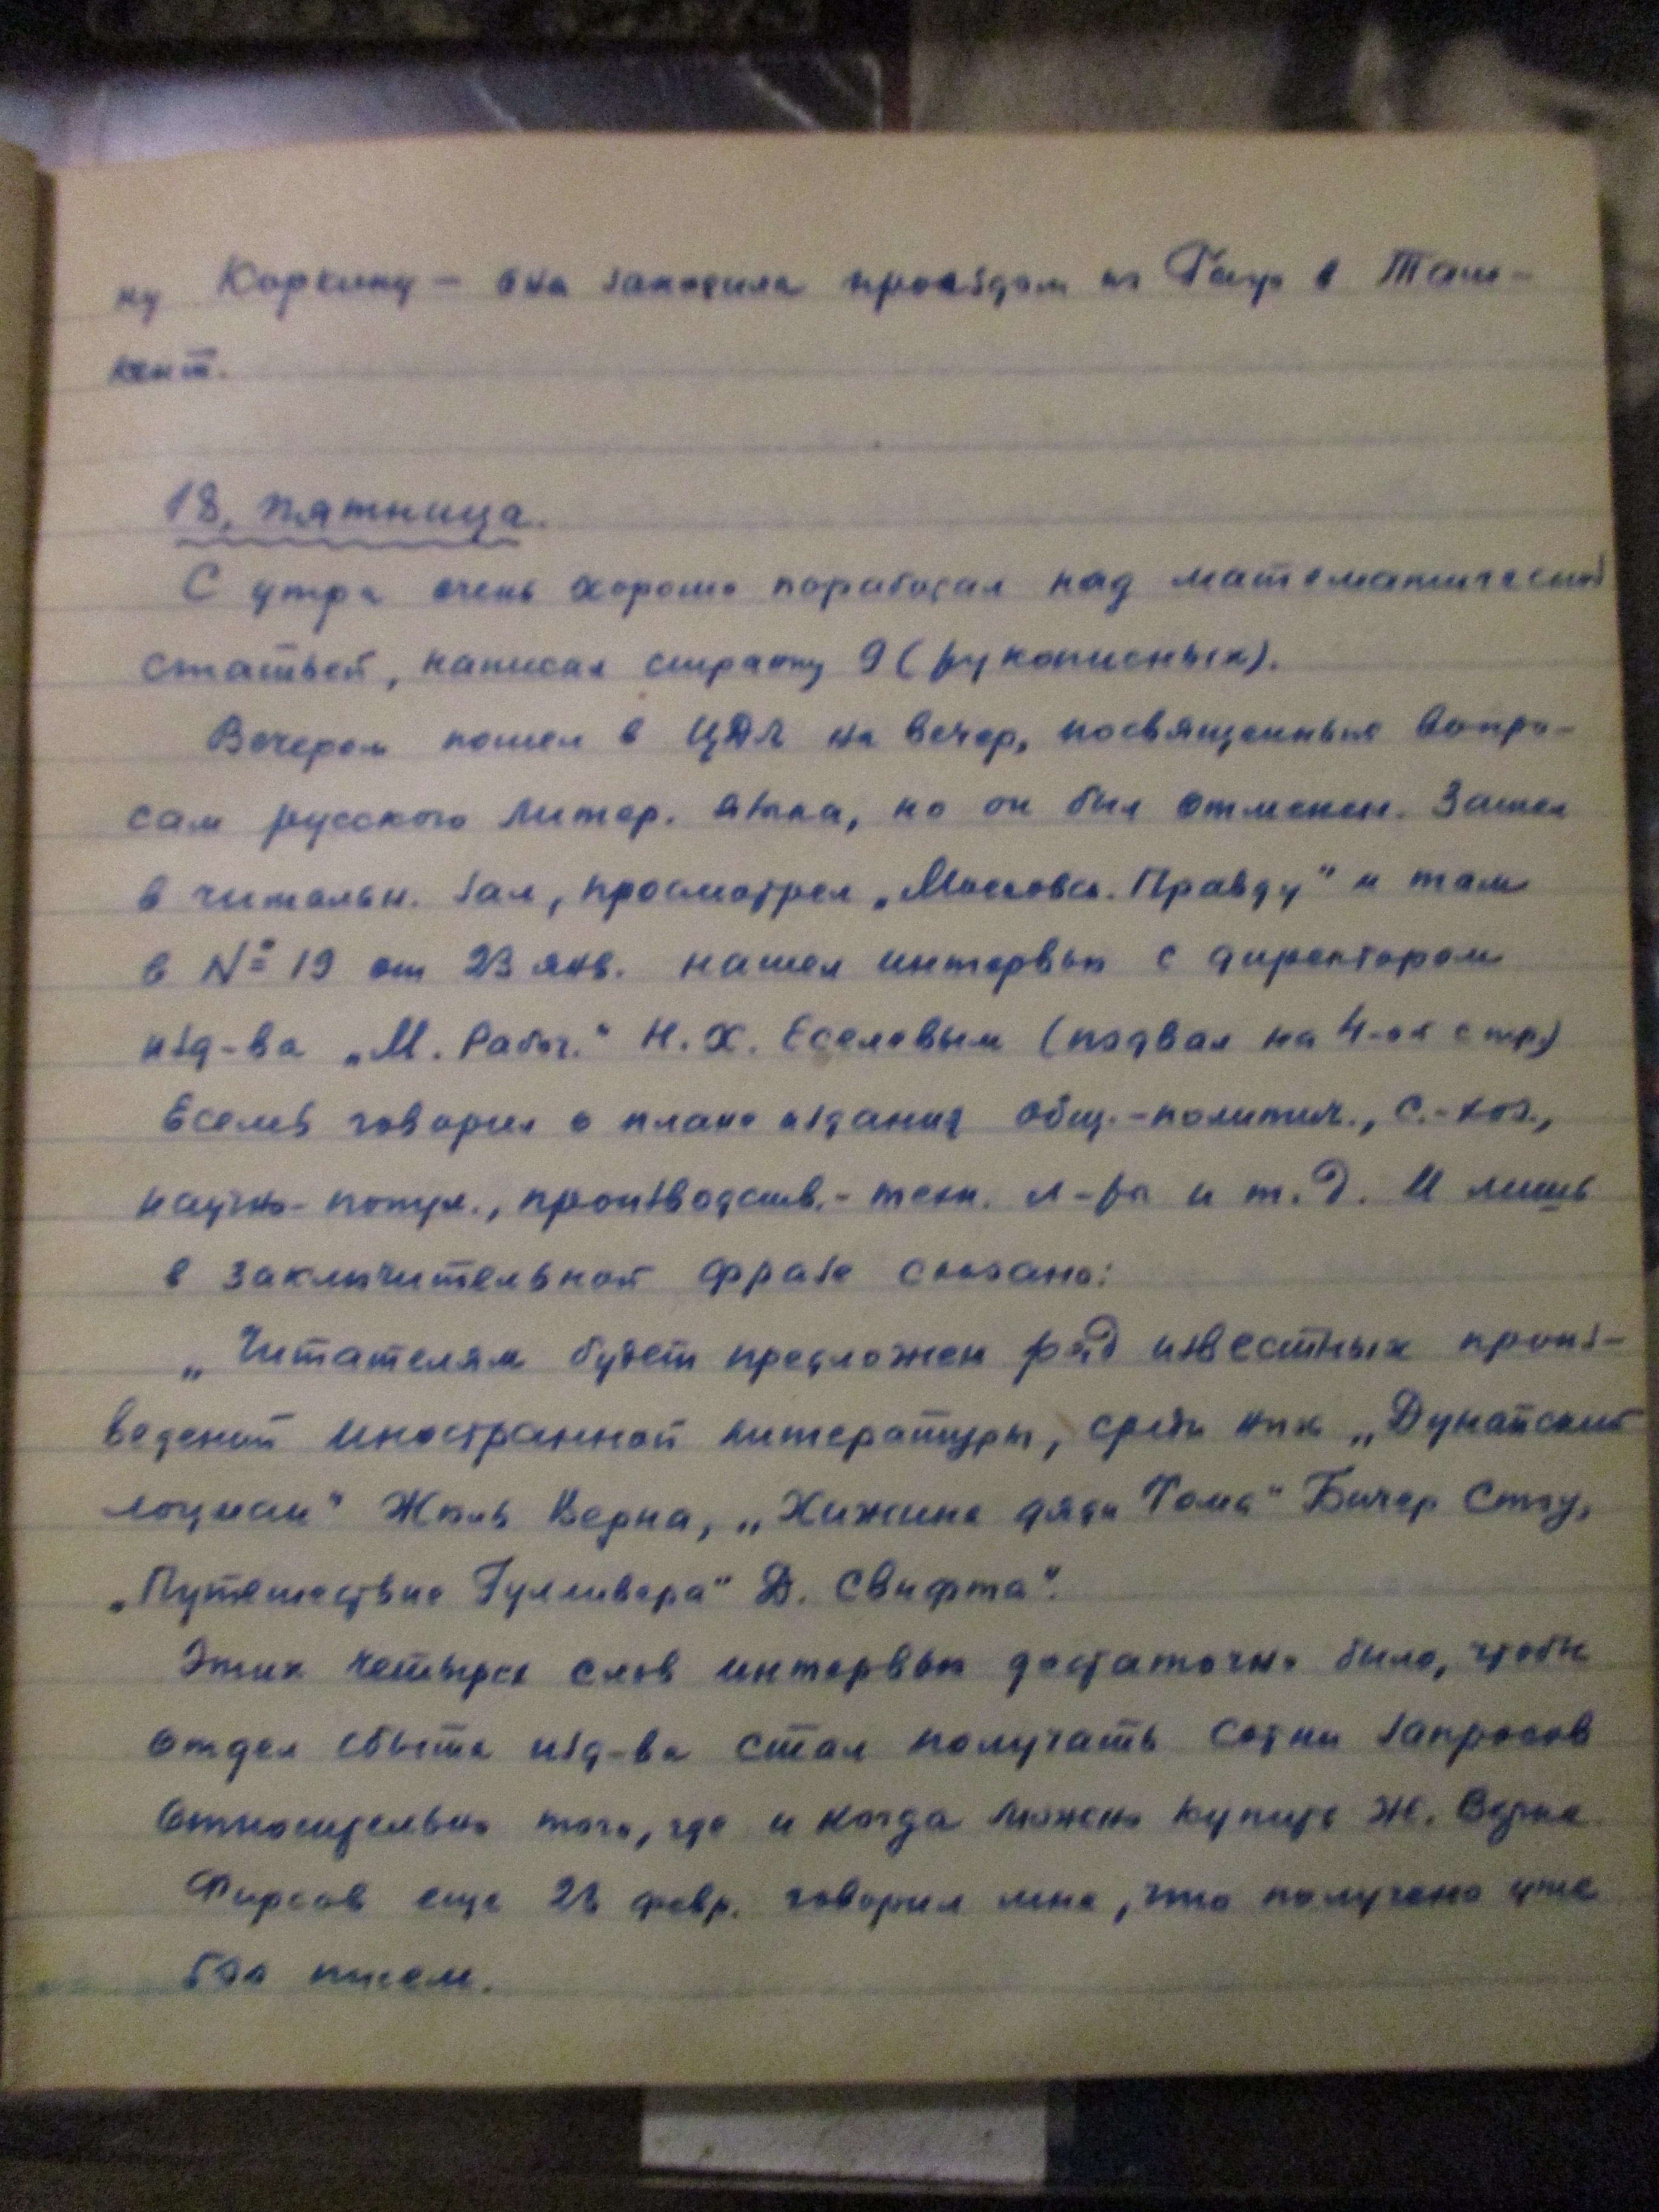 ну Коркину — она заходила проездом из Гагр в Таш-
кент.
18, пятница.
С утра очень хорошо поработал над математической
статьей, написал страниц 9 (рукописных).
Вечером пошел в ЦДЛ на вечер, посвященный вопро-
сам русского литер. языка, но он был отменен. Зашел
в читальн. зал, просмотрел „Московск. Правду" и там
в № 19 от 23 янв. нашел интервью с директором
изд-ва „М. Рабоч." Н. Х. Еселевым (подвал на 4-ой стр.)
Еселев говорил о плане издания общ.-политич., с.-хоз.,
научно-попул., производств.-техн. л-ры и т. д. И лишь
в заключительной фразе сказано:
„Читателям будет предложен ряд известных произ-
ведений иностранной литературы, среди них „Дунайский
лоцман" Жюль Верна, „Хижина дяди Тома" Бичер Стоу,
„Путешествие Гулливера" Д. Свифта".
Этих четырех слов интервью достаточно было, чтобы
отдел сбыта изд-ва стал получать сотни запросов
относительно того, где и когда можно купить Ж. Верна
Фирсов еще 23 февр. говорил мне, что получено уже
писем.